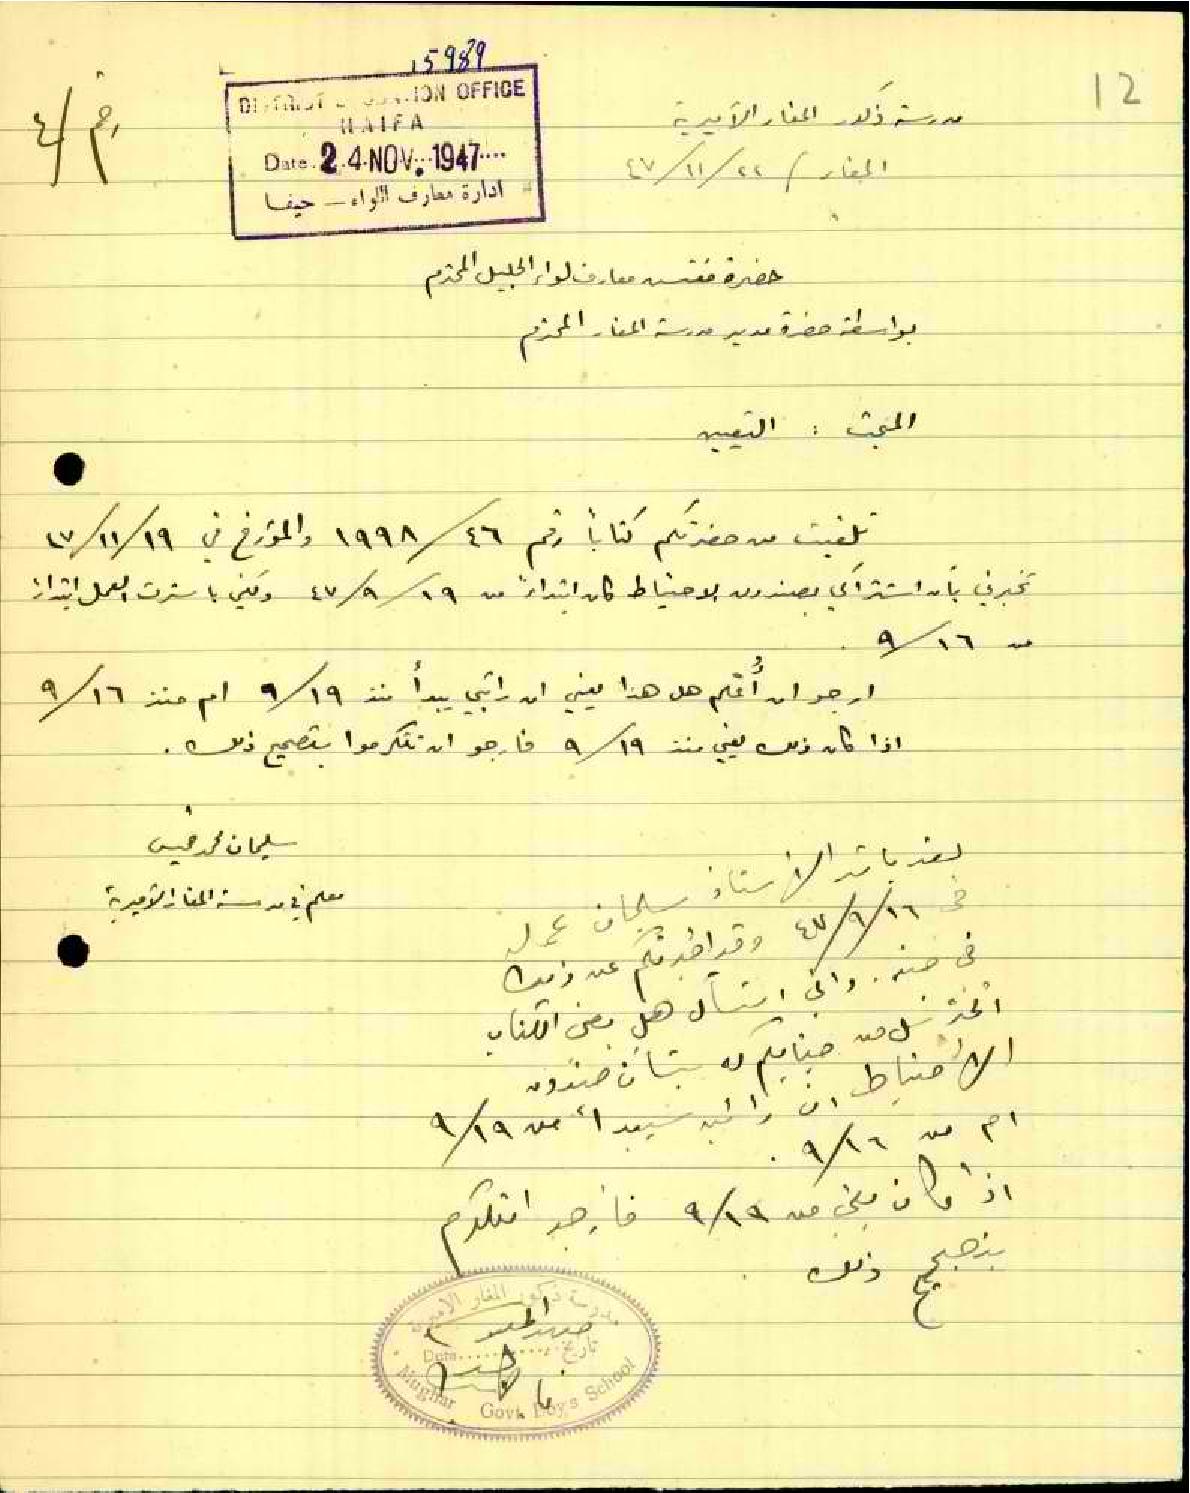 12
15989
DISTRICT EDUCATION OFFICE
HAIFA
Date 24 NOV. 1947
ادارة معارف اللواء — حيفا
مدرسة ذكور المغار الأميرية
المغار / ٢٢/١١/٤٧
حضرة مفتش معارف لواء الجليل المحترم
بواسطة حضرة مدير مدرسة المغار المحترم
المبحث : التعيين
تلقيت من حضرتكم كتاباً رقم ٤٦/١٩٩٨ والمؤرخ في ١٩/١١/٤٧
تخبرني بأن اشتراكي بصندوق الاحتياط كان ابتداءً من ١٩/٩/٤٧ ولكني باشرت العمل ابتداءً
من ١٦/٩ .
ارجو ان أُعلم هل هذا يعني ان راتبي يبدأ منذ ١٩/٩ ام منذ ١٦/٩
اذا كان ذلك يعني منذ ١٩/٩ فارجو ان تتكرموا بتصحيح ذلك .
سليمان محمد خميس
معلم في مدرسة المغار الأميرية
لقد باشر الأستاذ سليمان عمله
في ١٦/٩/٤٧ وقد اخبرتكم عن ذلك
في حينه . واني اتسأل هل يعني الكتاب
من جنابكم له بشأن صندوق
الاحتياط ان راتبه سيبدأ من ١٩/٩
ام من ١٦/٩ .
اذا كان يعني من ١٩/٩ فأرجو التكرم
بتصحيح ذلك .
مدرسة ذكور المغار الاميرية
Date تاريخ
Mughar Govt. Boys School